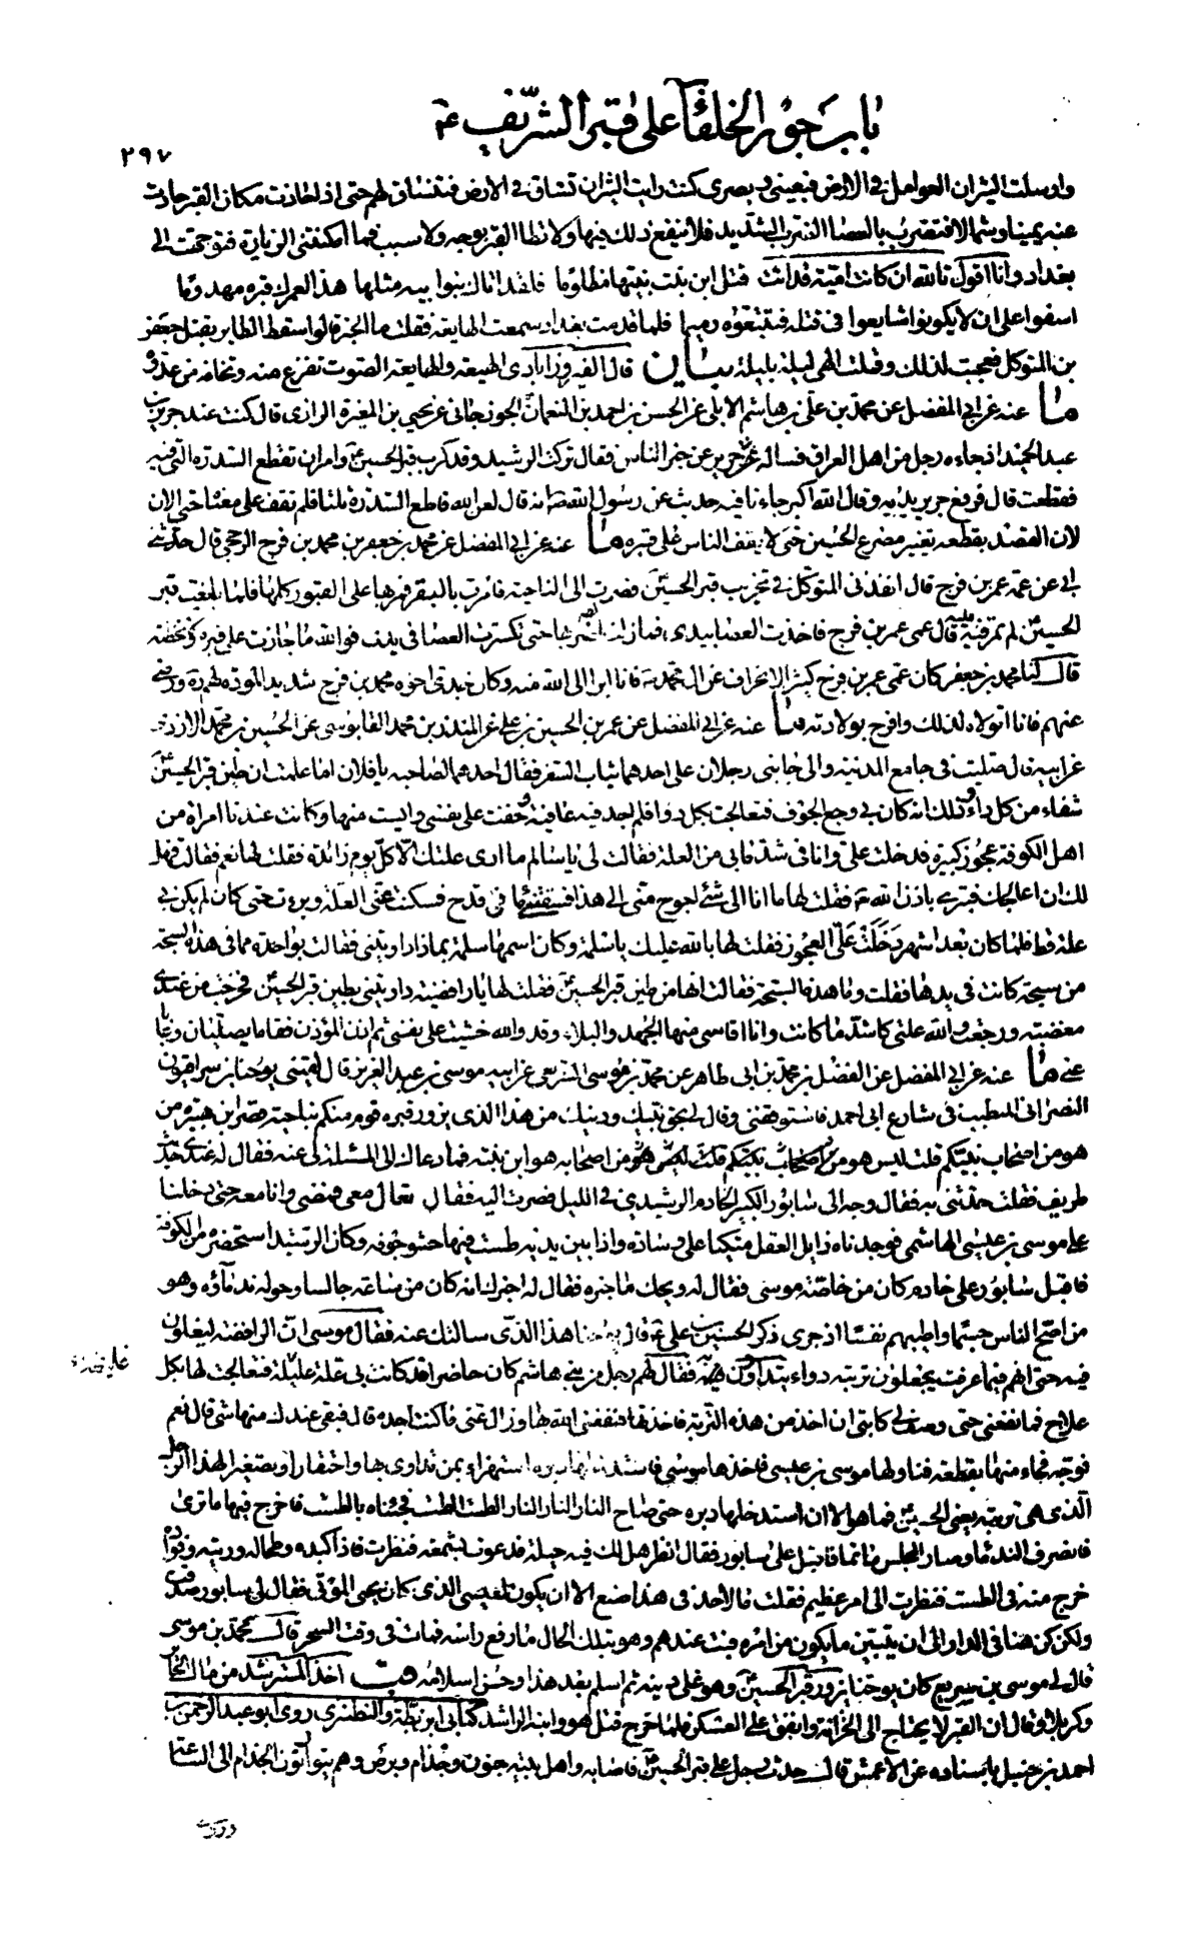 باب جور الخلفآء على قبره الشريف ع
٢٩٧
وارسلت الثيران العوامل في الارض فبعيني وبصري كنت رايت الثيران تساق في الارض فتنساق لهم حتى اذا حاذت مكان القبر حادت
عنه يمينا وشمالا فتضرب بالعصا الضرب الشديد فلا ينفع ذلك فيها ولا تطأ القبر بوجه ولا سبب فما امكنني الزيارة فتوجهت الى
بغداد وانا اقول تالله ان كانت امية قد اتت قتل ابن بنت نبيها مظلوما فلقد اتاك بنوا ابيه مثلها هذا لعمرك قبره مهدوما
اسفوا على ان لا يكونوا شايعوا في قتله فتتبعوه رميما فلما قدمت بغداد سمعت الهايعة فقلت ما الخبر قالوا سقط الطاير بقتل جعفر
بن المتوكل فعجبت لذلك وقلت الهي ليلة بليلة بيان قال الفيروزآبادي الهيعة والهايعة الصوت تفزع منه وتخافه من عدو
ما عنه عن ابي المفضل عن محمد بن علي بن هاشم الابلي عن الحسن بن احمد بن النعمان الجوزجاني عن يحيى بن المغيرة الرازي قال كنت عند جرير بن
عبد الحميد اذ جاءه رجل من اهل العراق فساله جرير عن خبر الناس فقال تركت الرشيد وقد كرب قبر الحسين ع وامر ان تقطع السدرة التي فيه
فقطعت قال فرفع جرير يديه وقال الله اكبر جاءنا فيه حديث عن رسول الله ص انه قال لعن الله قاطع السدرة ثلثا فلم نقف على معناه حتى الان
لان القصد بقطعه تغيير مصرع الحسين حتى لا يقف الناس على قبره ما عنه عن ابي المفضل عن محمد بن جعفر بن محمد بن فرج الرخجي قال حدثني
ابي عن عمه عمر بن فرج قال انفذني المتوكل في تخريب قبر الحسين ع فصرت الى الناحية فامرت بالبقر فمر بها على القبور كلها فلما بلغت قبر
الحسين ع لم تمر فيه قال عمي عمر بن فرج فاخذت العصا بيدي فما زلت اضربها حتى تكسرت العصا في يدي فوالله ما جازت على قبره ولا تخطته
قال لنا محمد بن جعفر كان عمي عمر بن فرج كثير الانحراف عن ال محمد ص فانا ابرا الى الله منه وكان جدي اخوه محمد بن فرج شديد المودة لهم ره ورضي
عنهم فانا اتولاه لذلك وافرح بولادته ما عنه عن ابي المفضل عن عمر بن الحسين بن علي عن المنذر بن محمد القابوسي عن الحسين بن محمد الازدي
عن ابيه قال صليت في جامع المدينة والى جانبي رجلان على احدهما ثياب السفر فقال احدهما لصاحبه يا فلان اما علمت ان طين قبر الحسين ع
شفاء من كل داء وذلك انه كان بي وجع الجوف فتعالجت بكل دواء فلم اجد فيه عافية وخفت على نفسي وايست منها وكانت عندنا امراة من
اهل الكوفة عجوز كبيرة فدخلت علي وانا في شدة ما بي من العلة فقالت لي يا سالم ما ارى علتك الا كل يوم زائدة فقلت لها نعم فقالت فهل
لك ان اعالجك فتبرء باذن الله عز فقلت لها ما انا الى شيء احوج مني الى هذا فسقتني ماء في قدح فسكنت عني العلة وبرءت حتى كان لم يكن بي
علة قط فلما كان بعد اشهر دخلت علي العجوز فقلت لها بالله عليك يا سلمة وكان اسمها سلمة بماذا داويتني فقالت بواحدة مما في هذه السبحة
من سبحة كانت في يدها فقلت وما هذه السبحة فقالت انها من طين قبر الحسين ع فقلت لها يا رافضية داويتني بطين قبر الحسين ع فخرجت من عندي
مغضبة ورجعت والله علتي كاشد ما كانت وانا اقاسي منها الجهد والبلاء وقد والله خشيت على نفسي ثم اذن المؤذن فقاما يصليان وغابا
عني ما عنه عن ابي المفضل عن الفضل بن محمد بن ابي طاهر عن محمد بن موسى الشريعي عن ابيه موسى بن عبد العزيز قال لقيني يوحنا بن سراقيون
النصراني المتطبب في شارع ابي احمد فاستوقفني وقال لي بحق نبيك ودينك من هذا الذي يزور قبره قوم منكم بناحية قصر ابن هبيرة من
هو من اصحاب نبيكم قلت ليس هو من اصحابه هو ابن بنته فما دعاك الى المسئلة لي عنه فقال له عندي حديث
طريف فقلت حدثني به فقال وجه الى سابور الكبير الخادم الرشيدي في الليل فصرت اليه فقال تعال معي فمضى وانا معه حتى دخلنا
على موسى بن عيسى الهاشمي فوجدناه زايل العقل متكيا على وسادة واذا بين يديه طست فيها حشو جوفه وكان الرشيد استحضره من الكوفة
فاقبل سابور على خادم كان من خاصة موسى فقال له ويحك ما خبره فقال له اخبرك انه كان من ساعة جالسا وحوله ندمآؤه وهو
من اصح الناس جسما واطيبهم نفسا اذ جرى ذكر الحسين بن علي ع قال يوحنا هذا الذي سالتك عنه فقال موسى ان الرافضة ليغلون
فيه حتى انهم فيما عرفت يجعلون تربته دواء يتداوون به فقال لهم رجل من بني هاشم كان حاضرا قد كانت بي علة غليظة فتعالجت لها بكل
علاج فما نفعني حتى وصف لي كاتبي ان اخذ من هذه التربة فاخذتها فنفعني الله بها وزال عني ما كنت اجده قال فبقي عندك منها شيء قال نعم
فوجه فجاء منها بقطعة فناولها موسى بن عيسى فاخذها موسى فاستدخلها دبره استهزاء بمن تداوى بها واحتقارا وتصغيرا لهذا الرجل
الذي هي تربته يعني الحسين ع فما هو الا ان استدخلها دبره حتى صاح النار النار الطست الطست فجئناه بالطست فاخرج فيها ما ترى
فانصرف الندماء وصار المجلس ماتما فاقبل علي سابور فقال انظر هل لك فيه حيلة فدعوت بشمعة فنظرت فاذا كبده وطحاله وريته وفؤاده
خرج منه في الطست فنظرت الى امر عظيم فقلت ما لاحد في هذا صنع الا ان يكون لعيسى الذي كان يحيي الموتى فقال لي سابور صدقت
ولكن كن هنا في الدار الى ان يتبين ما يكون من امره فبت عندهم وهو بتلك الحال ما رفع راسه فمات في وقت السحر قال محمد بن موسى
قال لي موسى بن سريع كان يوحنا يزور قبر الحسين ع وهو على دينه ثم اسلم بعد هذا وحسن اسلامه قب اخذ المسترشد من مال الحاير
وكربلا وقال ان القبر لا يحتاج الى الخزانة وانفق على العسكر فلما خرج قتل هو وابنه الراشد كتابي ابن بطة والنطنزي روى ابو عبد الرحمن بن
احمد بن حنبل باسناده عن الاعمش قال احدث رجل على قبر الحسين ع فاصابه واهل بيته جنون وجذام وبرص وهم يتوارثون الجذام الى الساعة